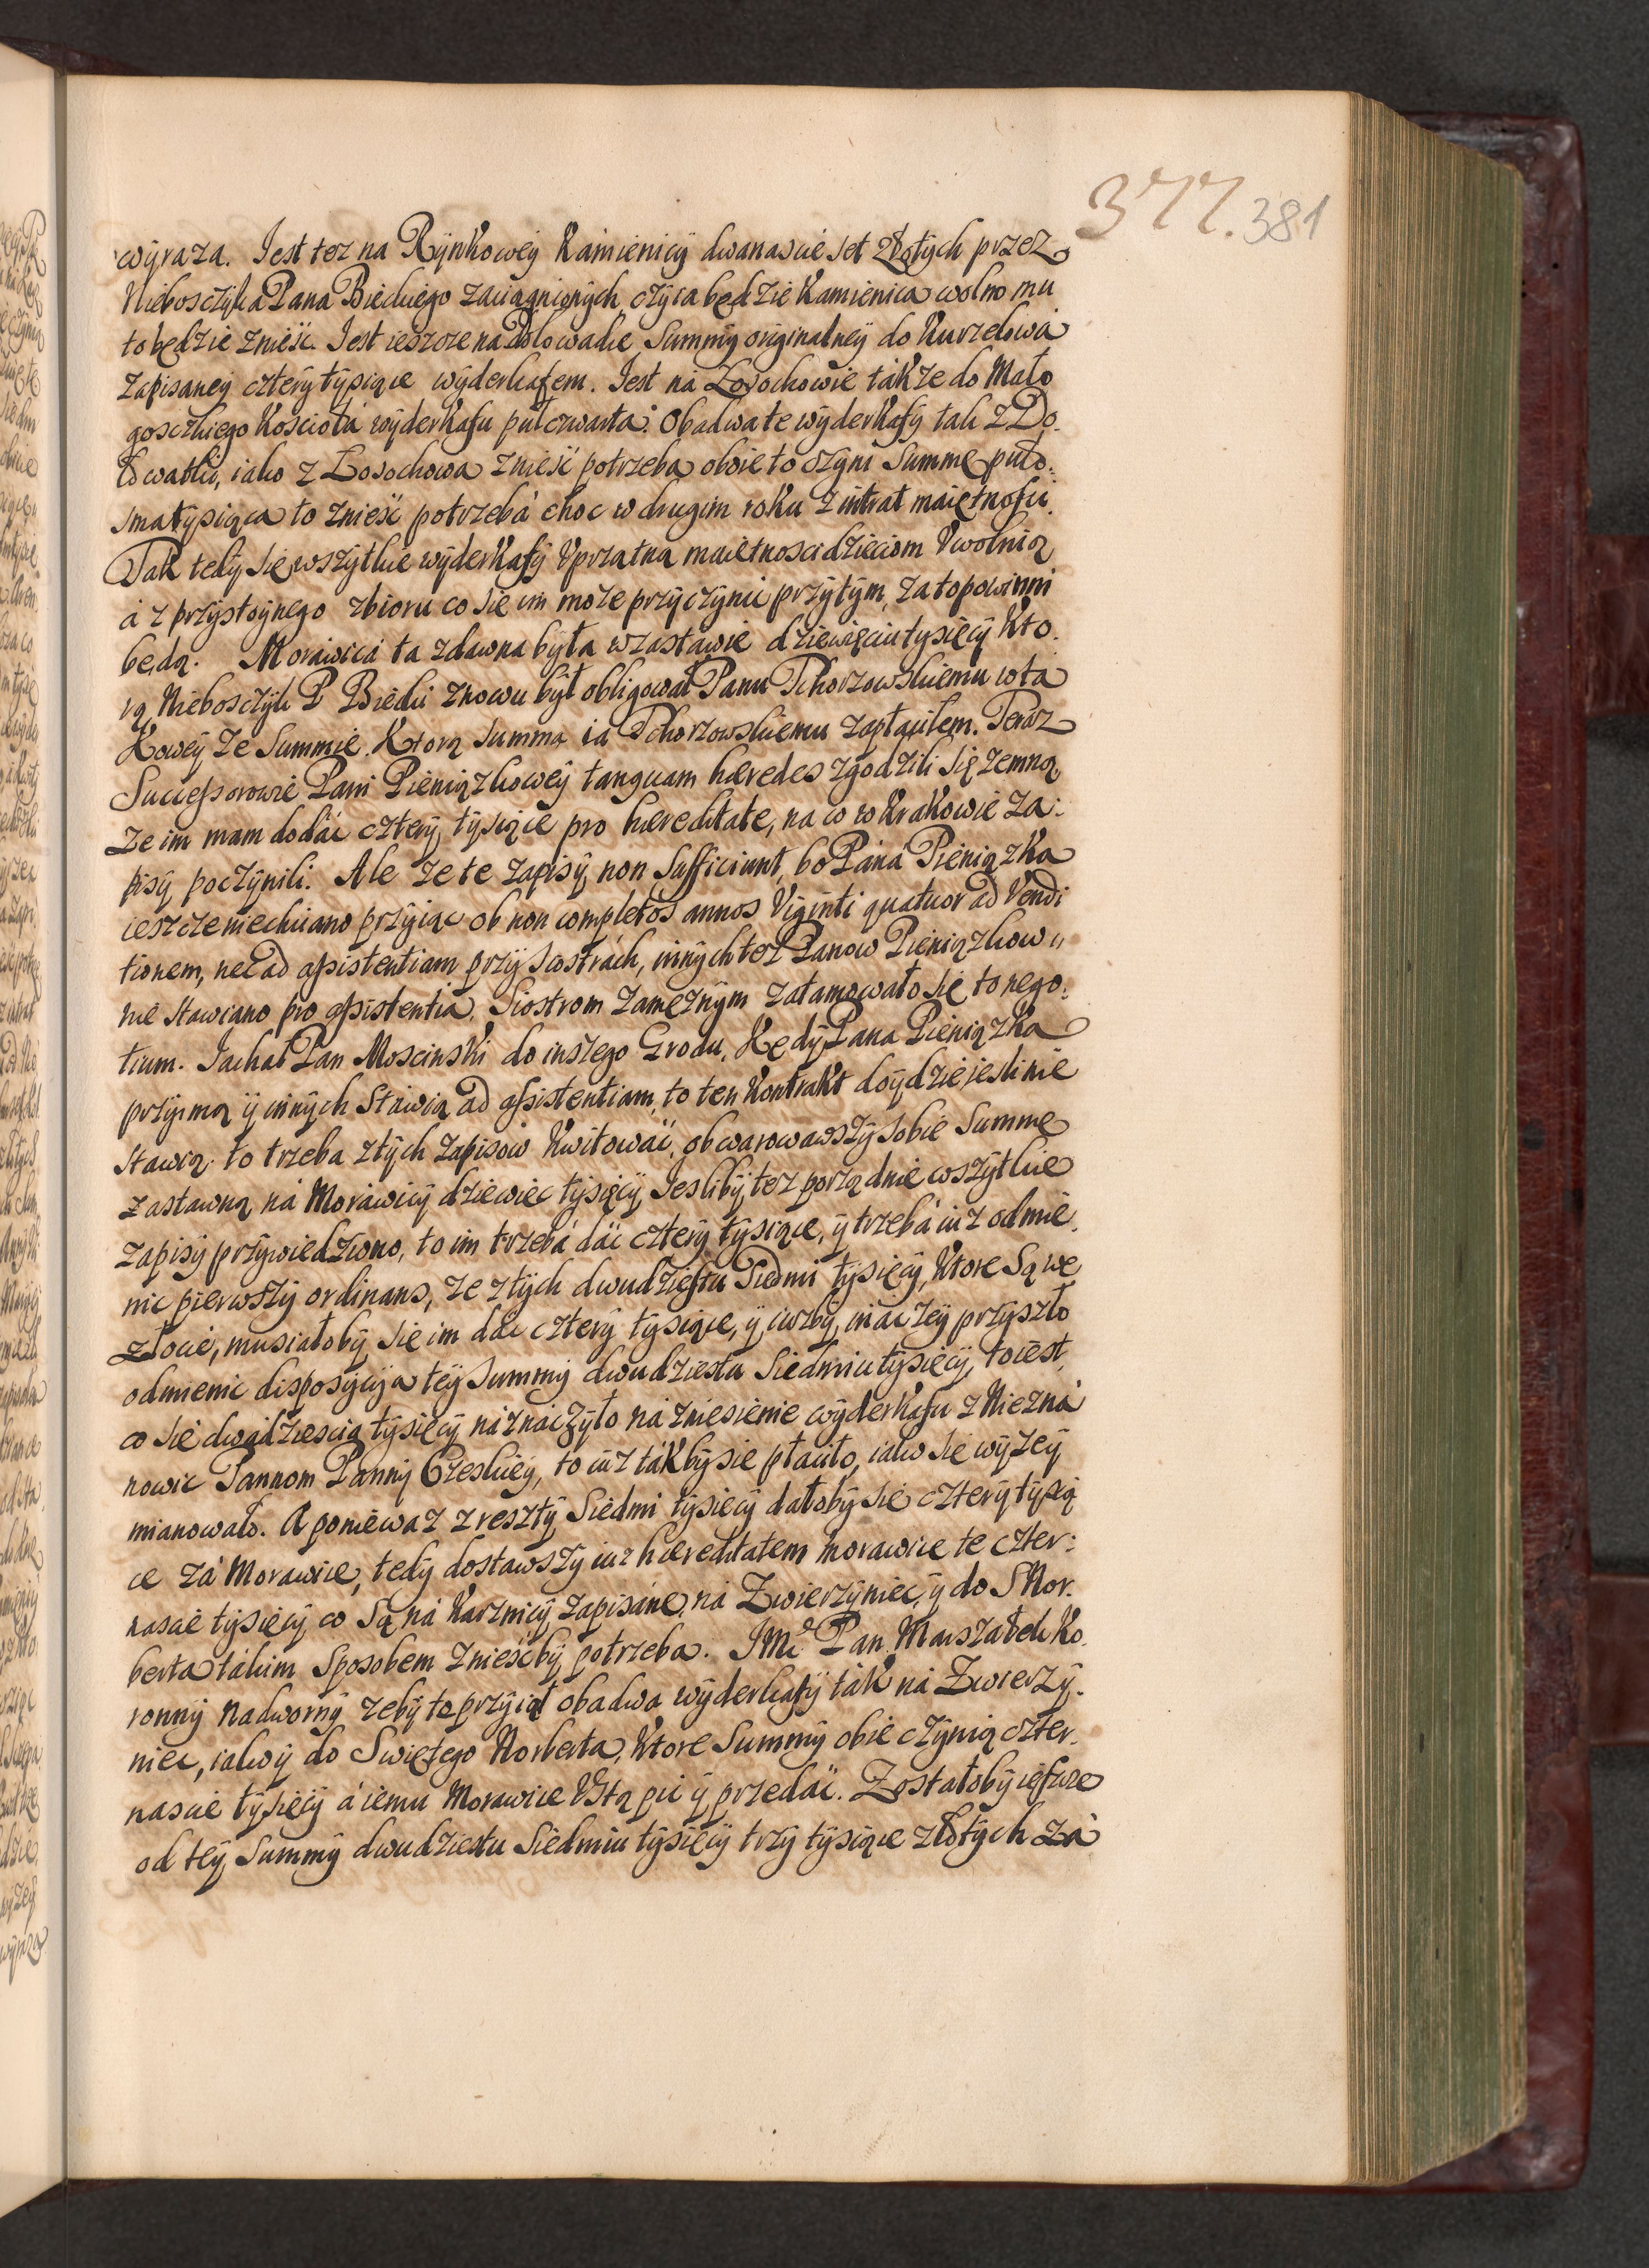 377. 381
wyraza. Jest tez na Rynkowey Kamienicy dwanascie set złotych przez
Nieboszczyka Pana Bieckiego zaciągnionych, czyia będzie Kamienica wolno mu
to będzie znieść. Jest ieszcze na Dołowatce Summy originalney do Kurzelowa
zapisaney cztery tysiące wyderkafem. Jest na Łosochowie takze do Mało
gosczkiego Kosciołá wyderkafu pułczwarta. Obadwa te wyderkafy tak z Do.
łowatki, iako z Łosochowa znieść potrzeba oboie to czyni Summę puło.
smatysiąca to znieść potrzebá choc w drugim roku z intrat maiętnosci.
Tak tedy się wszytkie wyderkafy Vprzatną maiętnosci dzieciom Vwolnią
á z przystoynego zbioru co się im moze przyczynic przytym, za to powinni
będą. Morawica ta zdawna była w zastawie dziewiąciu tysięcy Kto.
rą Nieboszczyk P Biecki znowu był obligował Panu Tchorzowskiemu w ta
Kowey ze Summie. Ktorą Summą ia Tchorzowskiemu zapłaciłem. Teraz
Successorowie Pani Pieniązkowey tanquam hæredes zgodzili się zemną
ze im mam dodáć cztery tysiące pro hæreditate, na co w Krakowie za:
pisy poczynili. Ale ze te zapisy non sufficiunt, bo Páná Pieniązka
ieszcze niechciano przyiąc ob non completos annos Viginti quatuor ad Vendi
tionem, nec ad assistentiam przy siostrách, innych tez Panow Pieniązkow
nie stawiano pro assistentia. Siostrom zamęznym zatamowało się to nego:
tium. Jachał Pan Moscinski do inszego Grodu, Kędy Pana Pieniązka
przyimą y innych Stáwią ad assistentiam, to ten Kontrakt doydzie jesli nie
stawią to trzeba z tych zapisow Kwitować, obwarowawszy sobie Summę
zastawną ná Moráwicy dziewięc tysięcy, Jesliby tez porządnie wszytkie
zapisy przywiedziono, to im trzebá dać cztery tysiące, y trzebá iuz odmie.
nic pierwszy ordinans, ze z tych dwudziestu Siedmi tysięcy, Ktore Są we
złocie, musiałoby się im dac cztery tysiące, y iuzby ináczey przyszło
odmienic disposycyą tey Summy dwudziestu Siedmiu tysięcy, to iest,
co się dwadziescia tysięcy náznáczyło ná zniesienie wyderkafu z Niezná
nowic Pannom Panny Czeskiey, to iuz ták by się płaciło, iako się wyzey
mianowało. A poniewaz z reszty Siedmi tysięcy dałoby się cztery tysią
ce zá Morawicę, tedy dostawszy iuz hæreditatem Morawice te czter:
nascie tysięcy co Są ná Karznicy zapisáne, ná Zwierzyniec, y do S Nor.
berta tákim sposobem znieśćby potrzeba. JMć Pan Marszałek Ko.
ronny Nadworny zeby to przyiął obadwa wyderkafy ták ná Zwierzy.
niec, iako y do Swiętego Norberta, Ktore Summy obie czynią czter.
nascie tysięcy á iemu Morawice Vstąpić y przedáć. Zostałoby ieszcze
od tey Summy dwudziestu Siedmiu tysięcy trzy tysiące złotych zá